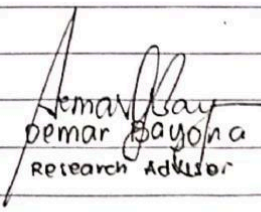 Demar Bayona
Research Advisor